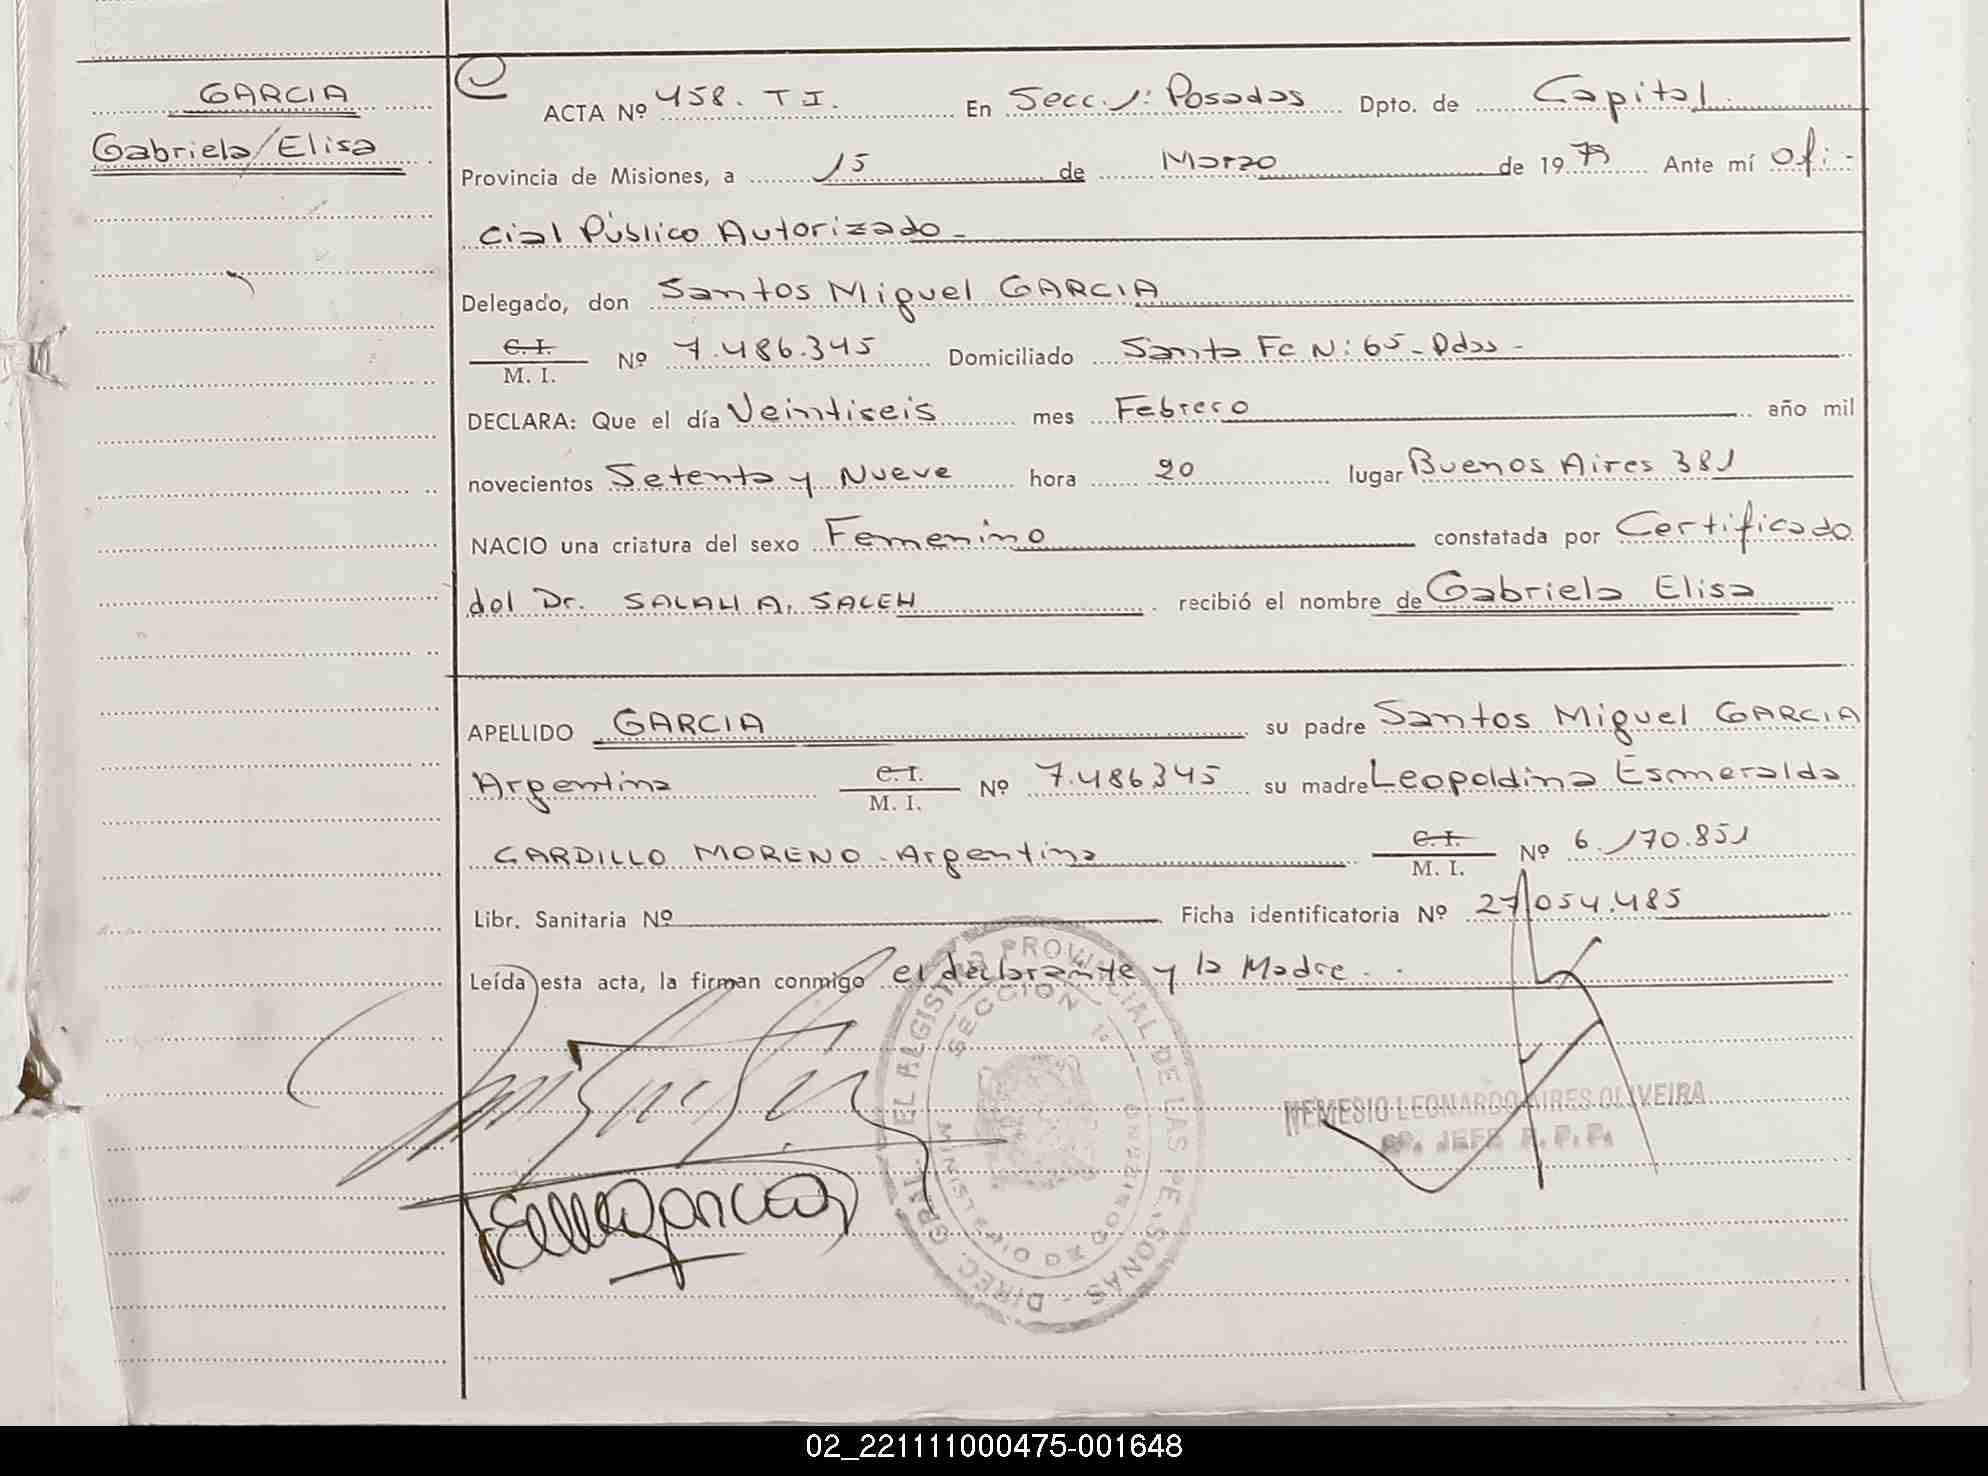 GARCIA
Gabriela Elisa
ACTA Nº 458. T I. En Secc. 1: Posadas Dpto. de Capital
Provincia de Misiones, a 15 de Marzo de 19 79 Ante mí Ofi-
cial Público Autorizado-
Delegado, don Santos Miguel GARCIA
C. I. / M. I. Nº 7.486.345 Domiciliado Santa Fe N: 65- Pdas-
DECLARA: Que el día Veintiseis mes Febrero año mil
novecientos Setenta y Nueve hora 20 lugar Buenos Aires 381
NACIO una criatura del sexo Femenino constatada por Certificado
del Dr. SALAH A. SALEH recibió el nombre de Gabriela Elisa
APELLIDO GARCIA su padre Santos Miguel GARCIA
Argentina C. I. / M. I. Nº 7.486345 su madre Leopoldina Esmeralda
GARDILLO MORENO - Argentina C. I. / M. I. Nº 6.170.851
Libr. Sanitaria Nº Ficha identificatoria Nº 27.054.485
Leída esta acta, la firman conmigo el declarante y la Madre.
DIREC. GRAL. EL REGISTRO PROVINCIAL DE LAS PERSONAS -
SECCION 1º
MINISTERIO DE GOBIERNO
NEMESIO LEONARDO AIRES OLIVEIRA
JEFE R. P. P.
02_221111000475-001648